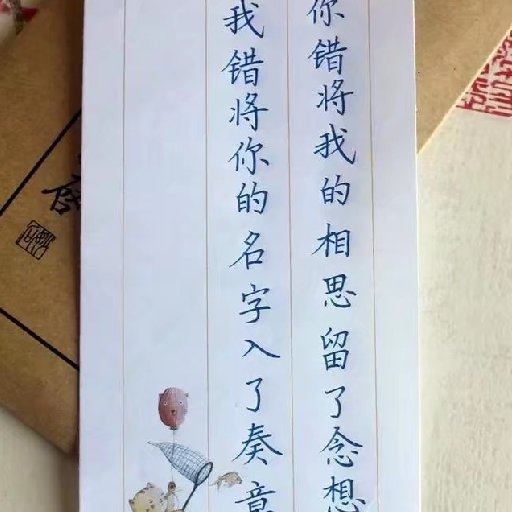 你错将我的相思留了念想
我错将你的名字入了奏章